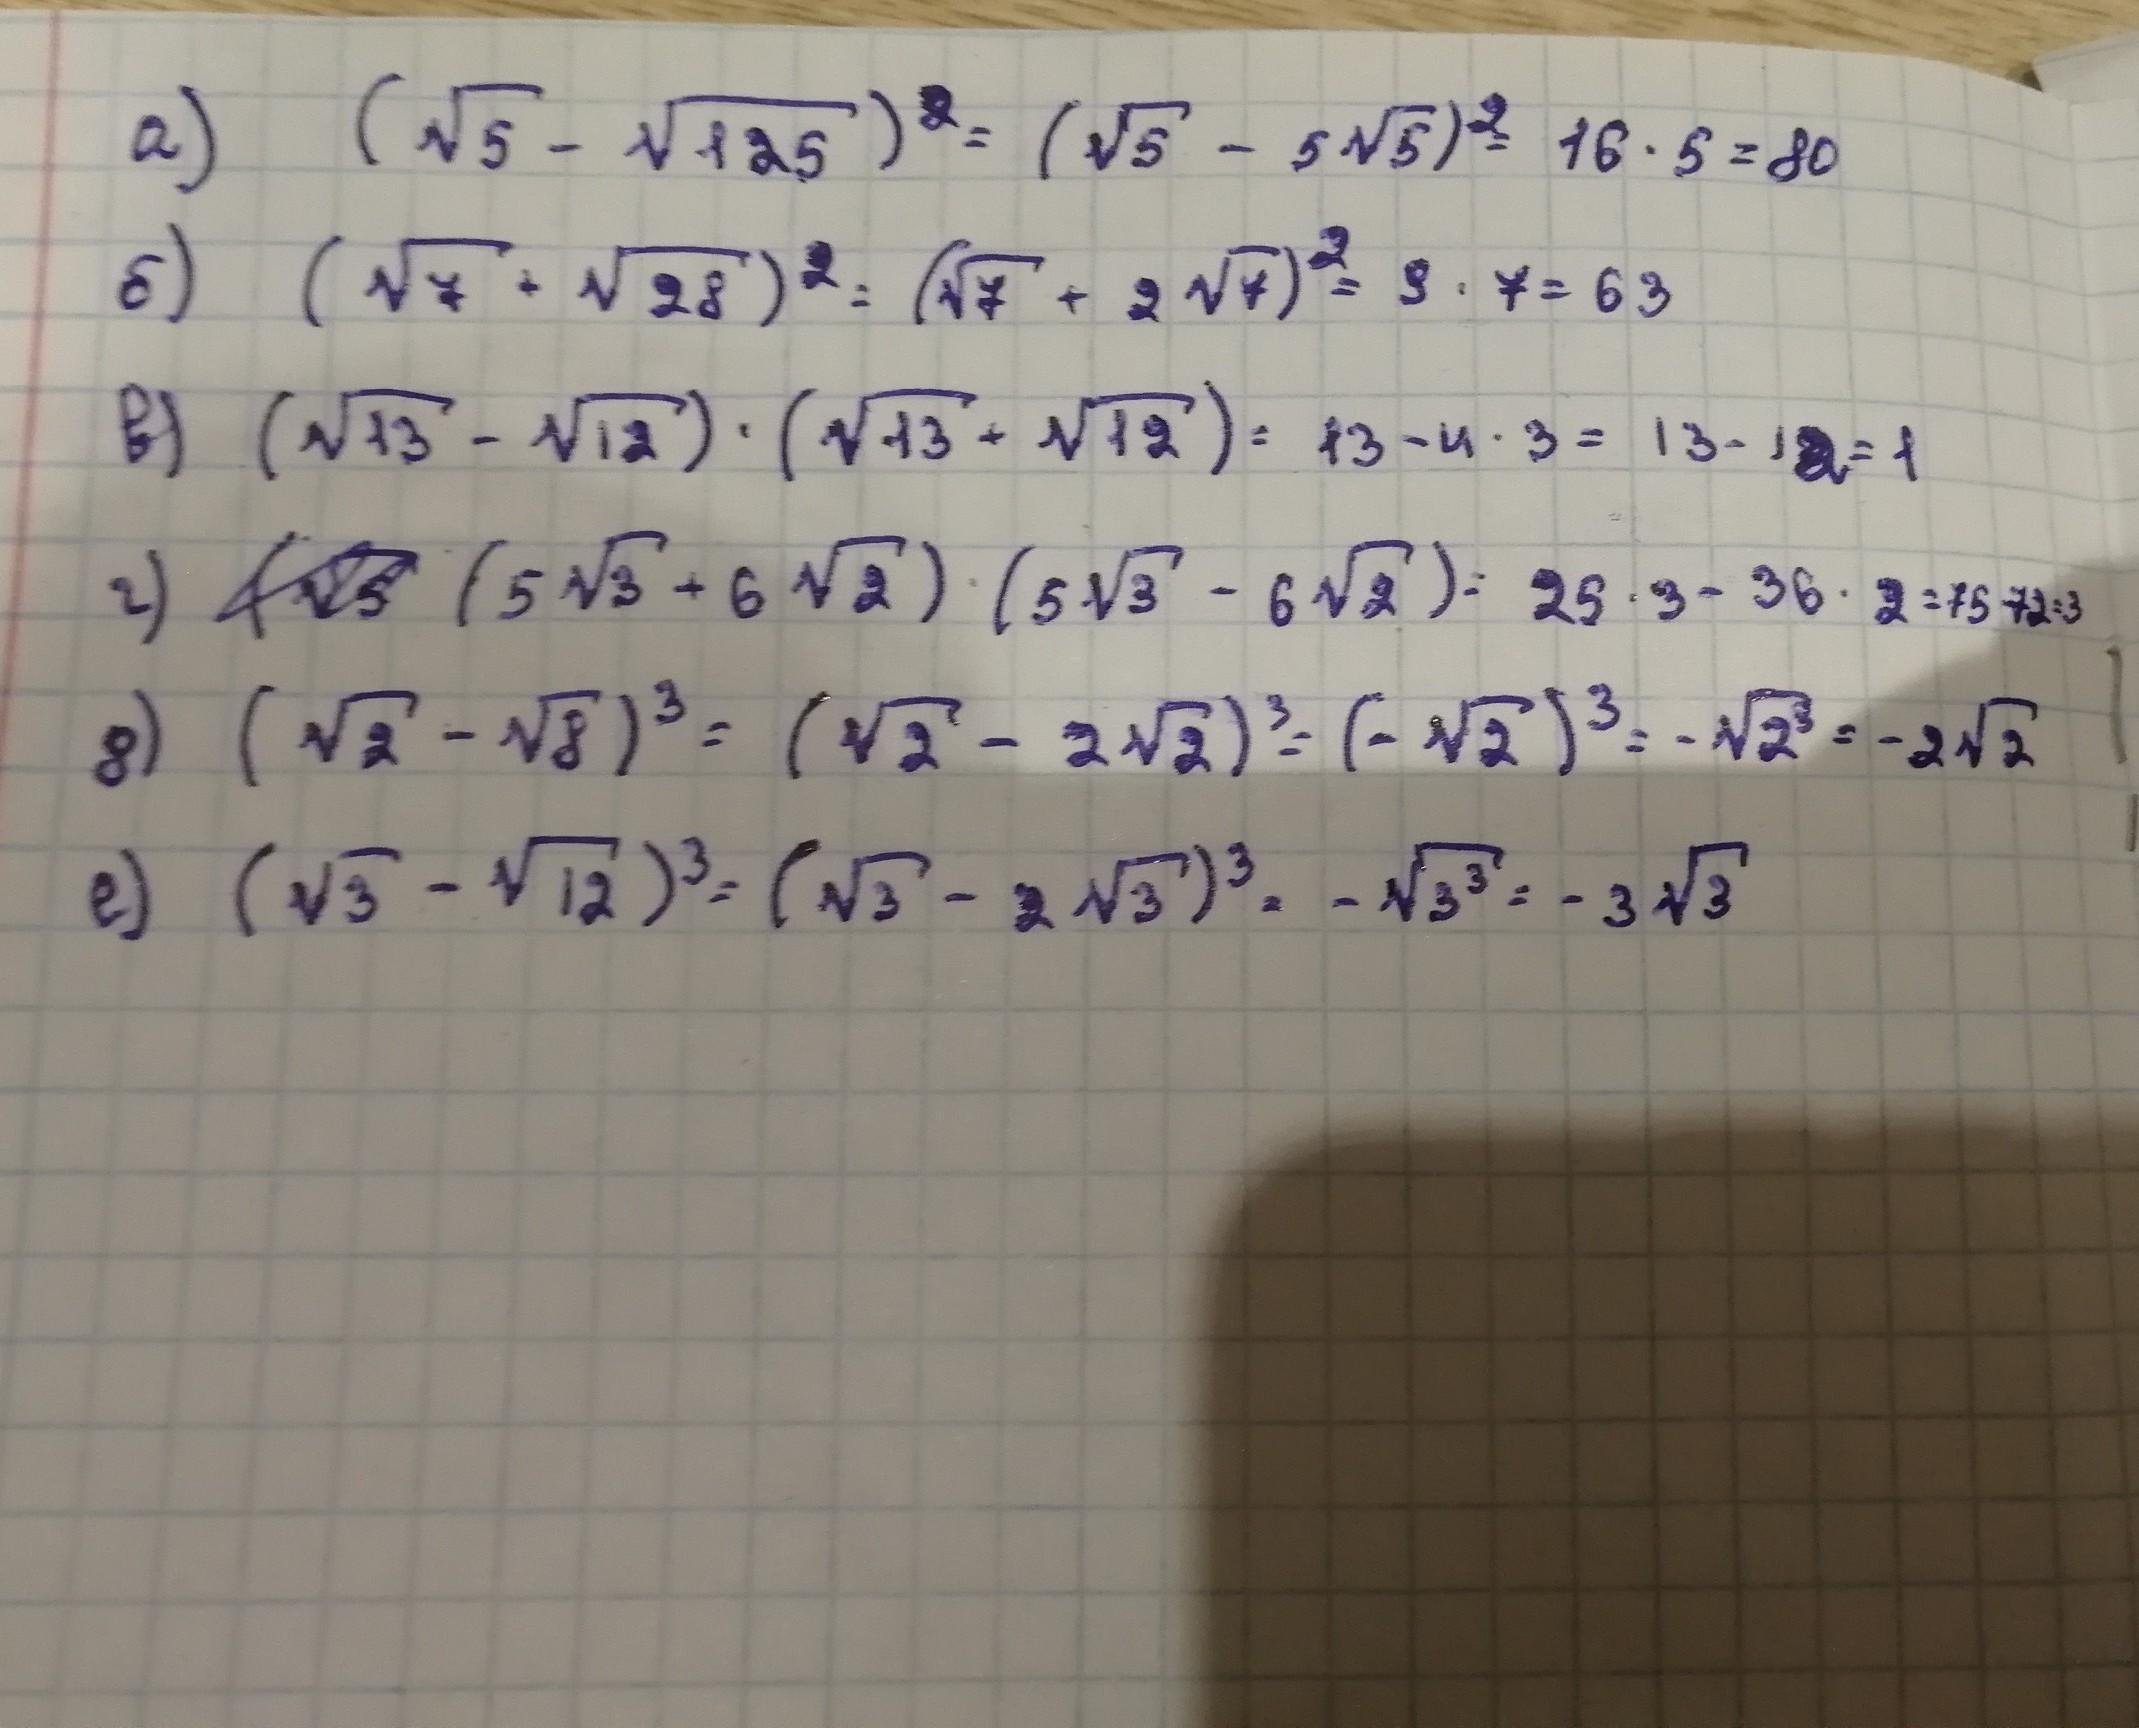 а) (√5 - √125)² = (√5 - 5√5)² = 16 · 5 = 80
б) (√7 + √28)² = (√7 + 2√7)² = 9 · 7 = 63
в) (√13 - √12) · (√13 + √12) = 13 - 4 · 3 = 13 - 12 = 1
г) (5√3 + 6√2) · (5√3 - 6√2) = 25 · 3 - 36 · 2 = 75-72=3
д) (√2 - √8)³ = (√2 - 2√2)³ = (-√2)³ = -√2³ = -2√2
е) (√3 - √12)³ = (√3 - 2√3)³ = -√3³ = -3√3